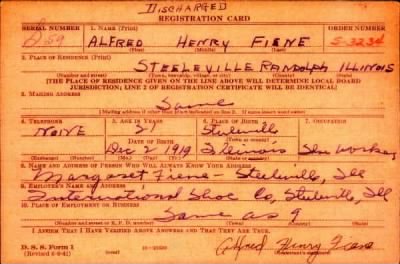 DISCHARGED
REGISTRATION CARD
SERIAL NUMBER 1. NAME (Print) ORDER NUMBER
ALFRED HENRY FIENE S-3234
(First) (Middle) (Last)
2. PLACE OF RESIDENCE (Print)
STEELEVILLE RANDOLPH ILLINOIS
(Number and street) (Town, township, village, or city) (County) (State)
[THE PLACE OF RESIDENCE GIVEN ON THE LINE ABOVE WILL DETERMINE LOCAL BOARD
JURISDICTION; LINE 2 OF REGISTRATION CERTIFICATE WILL BE IDENTICAL]
3. MAILING ADDRESS
Same
[Mailing address if other than place indicated on line 2. If same insert word same]
4. TELEPHONE 5. AGE IN YEARS 6. PLACE OF BIRTH 7. OCCUPATION
NONE 21 Steeleville
DATE OF BIRTH
Dec 2 1919 Illinois Shoe Worker
(Exchange) (Number) (Mo.) (Day) (Yr.) (State or country)
8. NAME AND ADDRESS OF PERSON WHO WILL ALWAYS KNOW YOUR ADDRESS
Margaret Fiene - Steeleville, Ill
9. EMPLOYER'S NAME AND ADDRESS
International Shoe Co, Steeleville, Ill
10. PLACE OF EMPLOYMENT OR BUSINESS
Same as 9
(Number and street or R. F. D. number) (Town) (County) (State)
I AFFIRM THAT I HAVE VERIFIED ABOVE ANSWERS AND THAT THEY ARE TRUE.
D. S. S. Form 1 Alfred Henry Fiene
(Registrant's signature)